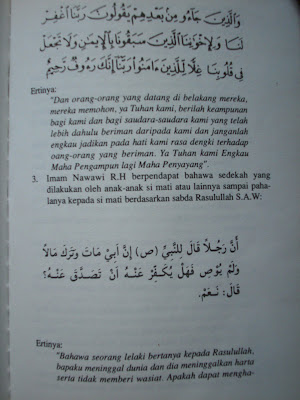 وَالَّذِينَ جَاءُو مِنْ بَعْدِهِمْ يَقُولُونَ رَبَّنَا اغْفِرْ
لَنَا وَلِإِخْوَانِنَا الَّذِينَ سَبَقُونَا بِالْإِيمَٰنِ وَلَا تَجْعَلْ
فِي قُلُوبِنَا غِلًّا لِلَّذِينَ ءَامَنُوا رَبَّنَا إِنَّكَ رَءُوفٌ رَحِيمٌ
Ertinya:
"Dan orang-orang yang datang di belakang mereka,
mereka memohon, ya Tuhan kami, berilah keampunan
bagi kami dan bagi saudara-saudara kami yang telah
lebih dahulu beriman daripada kami dan janganlah
engkau jadikan pada hati kami rasa dengki terhadap
oang-orang yang beriman. Ya Tuhan kami Engkau
Maha Pengampun lagi Maha Penyayang".
3. Imam Nawawi R.H berpendapat bahawa sedekah yang
dilakukan oleh anak-anak si mati atau lainnya sampai paha-
lanya kepada si mati berdasarkan sabda Rasulullah S.A.W:
أَنَّ رَجُلًا قَالَ لِلنَّبِيِّ (ص) إِنَّ أَبِيْ مَاتَ وَتَرَكَ مَالًا
وَلَمْ يُوْصِ فَهَلْ يُكَفِّرُ عَنْهُ أَنْ تَصَدَّقَ عَنْهُ؟
قَالَ: نَعَمْ.
Ertinya:
"Bahawa seorang lelaki bertanya kepada Rasulullah,
bapaku meninggal dunia dan dia meninggalkan harta
serta tidak memberi wasiat. Apakah dapat mengha-